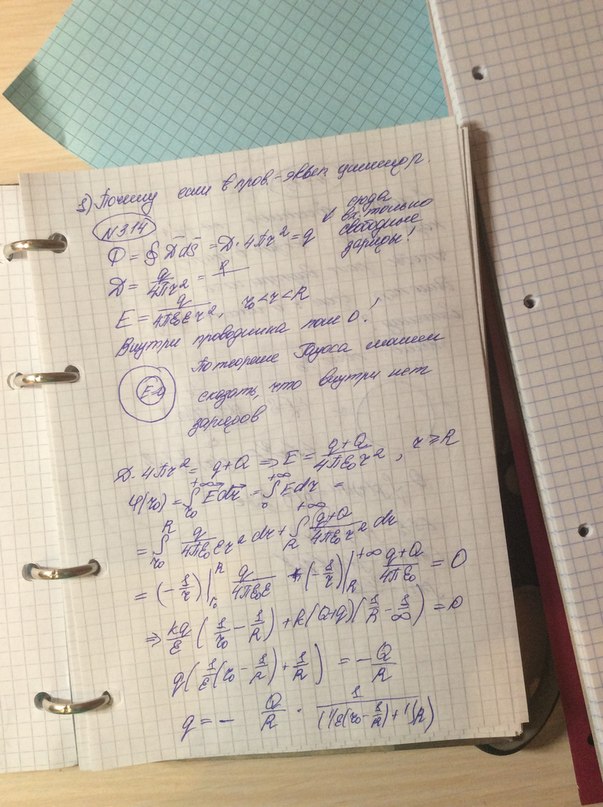 3) Почему если в пров.-эквип
N314
Ф = ∮ D̄ dS̄ = D·4πr² = q
среда
только
свободные
заряды!
D = q/4πr² =
E = q/4πε₀εr², r₀<r<R
Внутри проводника поле 0!
По теореме Гаусса можем
E=0 сказать, что внутри нет
зарядов
D·4πr² = q+Q ⇒ E = q+Q/4πε₀r², r ≥ R
φ(r₀) = ∫r₀^+∞ Edr = ∫^+∞ Edr =
= ∫r₀^R q/4πε₀εr² dr + ∫R^+∞ q+Q/4πε₀r² dr
= (-1/r)|r₀^R q/4πε₀ε + (-1/r)|R^+∞ q+Q/4πε₀ = 0
⇒ kq/ε (1/r₀ - 1/R) + k(Q+q)(1/R - 1/∞) = 0
q(1/ε(r₀ - 1/R) + 1/R) = -Q/R
q = - Q/R · 1/(1/ε(r₀ - 1/R) + 1/R)